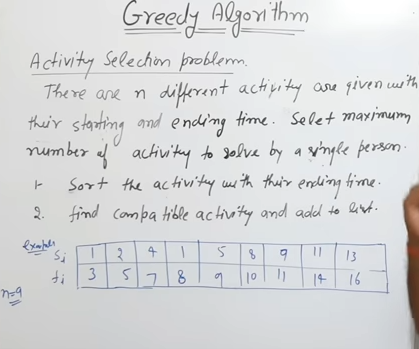 Greedy Algorithm
Activity Selection problem.
There are n different activity are given with
their starting and ending time. Selet maximum
number of activity to solve by a single person.
1- Sort the activity with their ending time.
2. find compatible activity and add to list.
Example
Si 1 2 4 1 5 8 9 11 13
fi 3 5 7 8 9 10 11 14 16
n=9